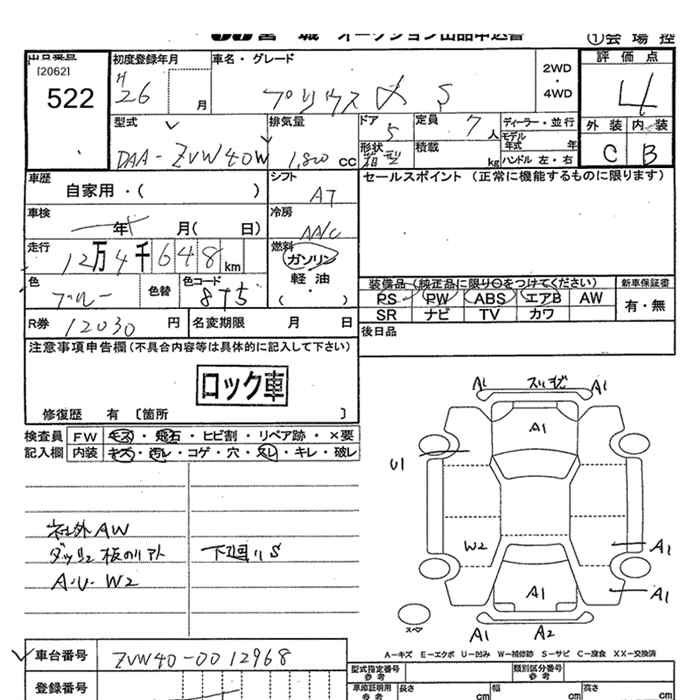 宮 城 オークション出品申込書
①会 場 控
出品番号
[2062]
522
初度登録年月
H26 月
車名・グレード
プリウス α S
2WD
・
4WD
評 価 点
4
外 装 内 装
C B
型式
DAA-ZVW40W
排気量
1,800 cc
ドア
5
形状
箱型
定員
7 人
積載
kg
ディーラー・並行
モデル
年式 年
ハンドル 左・右
車歴
自家用・( )
シフト
AT
セールスポイント (正常に機能するものに限ります)
車検
年 月( 日)
冷房
AA/C
走行
12万4千648km
燃料
ガソリン
軽 油
( ・ )
色
ブルー
色替
色コード
8T5
装備品 (純正品に限り○をつけてください)
PS PW ABS エアB AW
SR ナビ TV カワ
新車保証書
有・無
R券 12030 円
名変期限 月 日
後日品
注意事項申告欄(不具合内容等は具体的に記入して下さい)
ロック車
修復歴 有 〔箇所 〕
検査員
記入欄
FW キズ・飛石・ヒビ割・リペア跡・×要
内装 キズ・汚レ・コゲ・穴・スレ・キレ・破レ
社外AW
A・U・W2
下廻りS
A1
スリキビ
A1
A1
U1
W2
A1
A1
A1
スペア
A1
A2
A－キズ E－エクボ U－凹み W－補修跡 S－サビ C－腐食 XX－交換済
車台番号 ZVW40-0012968
登録番号
型式指定番号
参考
類別区分番号
参考
車庫証明用
参考
長さ cm
幅 cm
高さ cm